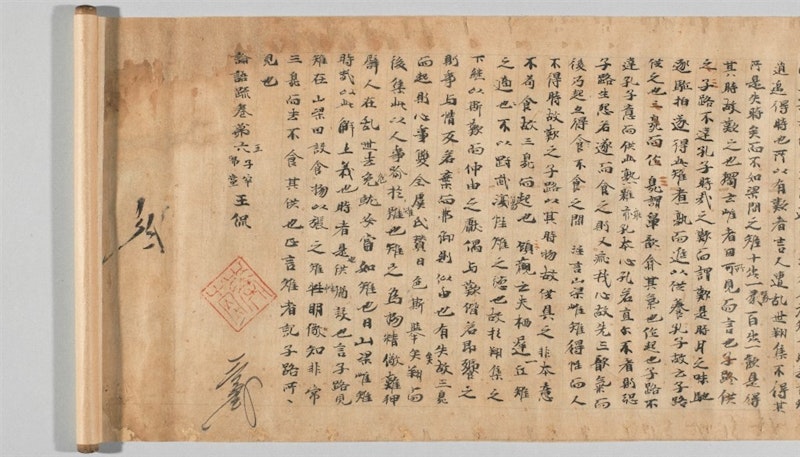 逍遙得時也所以有歎者言人遭乱世翔集不得其
所是失時矣而不如梁間之雉十步一啄百步一飲是得
其時故歎之也獨云雌者因所見而言也子路供
之子路不達孔子時哉之歎而謂歎是時月之味馳
逐駈拍遂得此雉煮熟而進以供養孔子故云子路
供之也三臭而作臭謂鼻歆翕其氣也作起也子路不
達孔子意而供此熟雉乖孔本心孔若直尒不者則恐
子路生怨若遂而食之則又乖我心故先三歎氣而
後乃起亦得食不食之間 註言山梁雌雉得性而人
不得時故歎之子路以其時物故供具之非本意
不苟食故三臭而起也 顧歡云夫栖遲丘雉
之適也不以剛武傷性雌之德也故於翔集之
下継以斯歎而仲由之獻偶与歎諧若即饗之
則事与情反若棄而弗御則似由也有失故三臭
而起則心事雙全虞氏賛曰色斯舉矣翔而
後集此以人事喻於雉也雉之為物精儆難狎
譬人在乱世去危就安當如雉也曰山梁雌雉
時哉以此解上義也時者是也供猶設也言子路見
雉在山梁因設食物以張之雉性明儆知非常
三臭而去不食其供也正言雌者記子路所
見也
論語疏卷第六 王侃